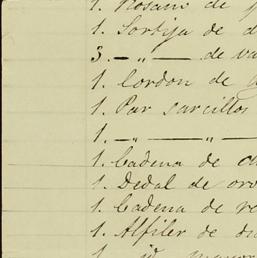 1. Rosario de
1. Sortija de d
3. — „ — de va
1. Cordon de
1. Par sarcillos
1. — „ — „ —
1. Cadena de
1. Dedal de oro
1. Cadena de re
1. Alfiler de
1. id mayor